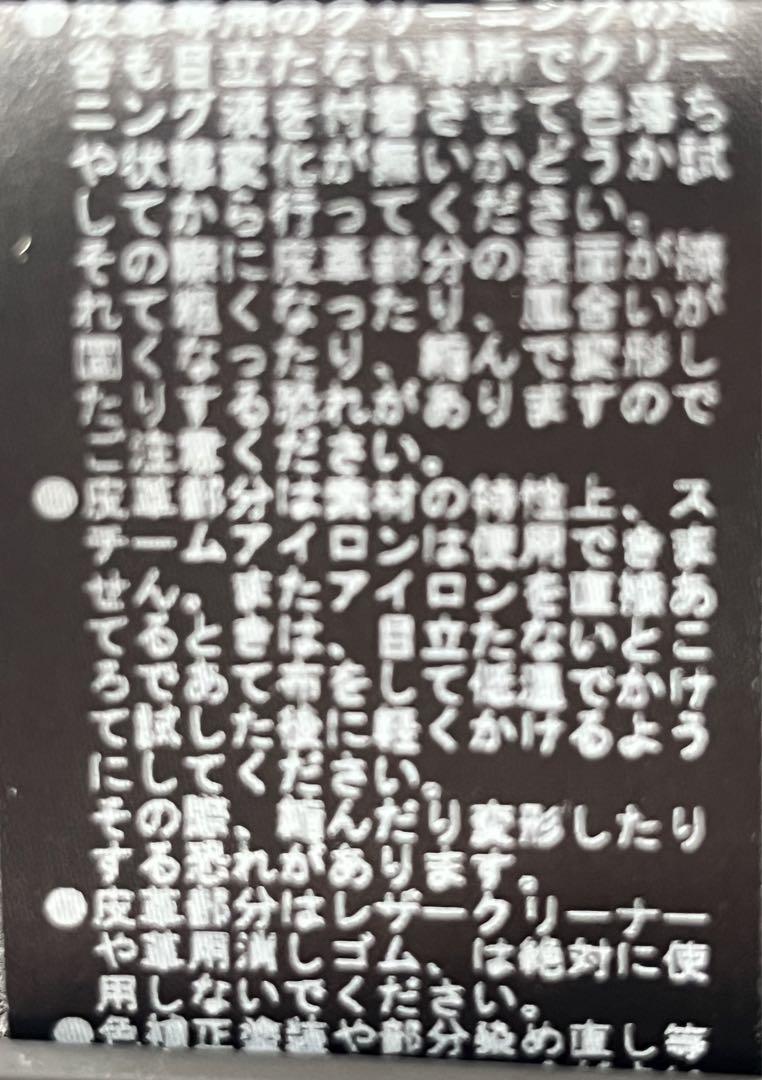 ●皮革専用のクリーニングの場
合も目立たない場所でクリー
ニング液を付着させて色落ち
や状態変化が無いかどうか試
してから行ってください。
その際に皮革部分の表面が
れて堅くなったり、風合いが
くなったり、縮んで変形し
たりする恐れがありますので
ご注意ください。
●皮革部分は素材の特性上、ス
チームアイロンは使用できま
せん。またアイロンを直接あ
てるときは、目立たないとこ
ろであて布をして低温でかけ
て試したた後に軽くかけるよう
にしてください。
その際、縮んだり変形したり
する恐れがあります。
●皮革部分はレザークリーナー
や革用消しゴム、は絶対に使
用しないでください。
●色補正塗装や部分染め直し等